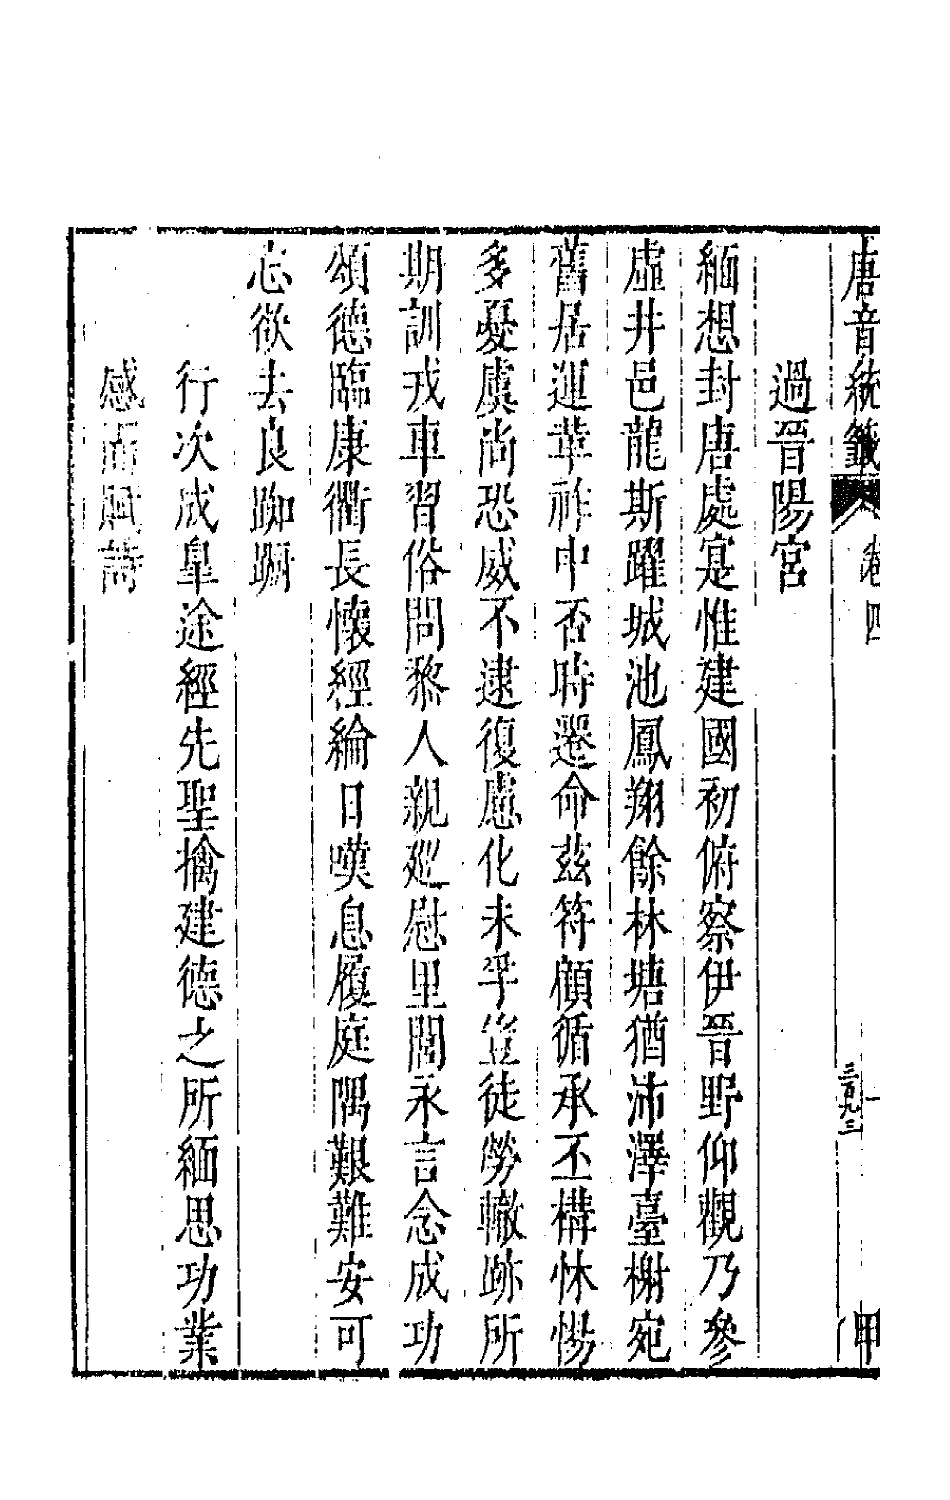 唐音統籤 卷四 一 三百九三 甲
過晉陽宮
緬想封唐處寔惟建國初俯察伊晉野仰觀乃參
虛井邑龍斯躍城池鳳翔餘林塘猶沛澤臺榭宛
舊居運革祚中否時遷命茲符顧循承丕構怵惕
多憂虞尚恐威不逮復慮化未孚豈徒勞轍跡所
期訓戎車習俗問黎人親巡慰里閭永言念成功
頌德臨康衢長懷經綸日嘆息履庭隅艱難安可
忘欲去良踟躕
行次成皐途經先聖擒建德之所緬思功業
感而賦詩